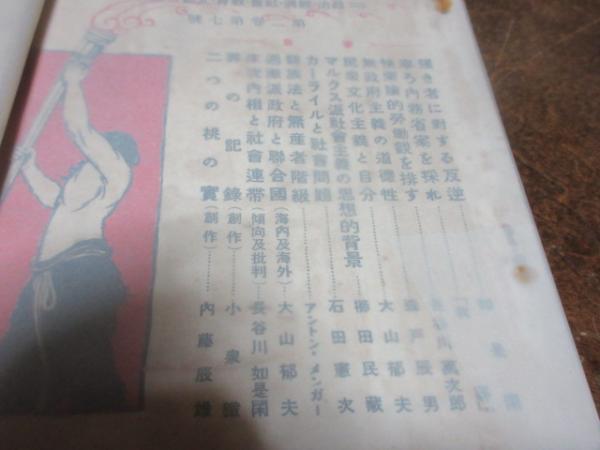 第二卷第七號
強き者に對する反逆
寧ろ內務省案を採れ 長谷川萬次郎
快樂論的勞働說を排す 森戶辰男
無政府主義の道德性 大山郁夫
民衆文化主義と自分 櫛田民藏
マルクス派社會主義の思想的背景 石田憲次
カーライルと社會問題 アントン・メンガー
親族法と無產者階級
過激派政府と聯合國(海內及海外) 大山郁夫
床次內相と社會連帶(傾向及批判) 長谷川如是閑
罪の記錄(創作) 小泉鐵
二つの桃の實(創作) 內藤辰雄